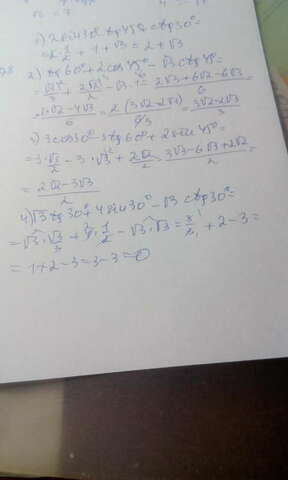 1) 2 sin 30° + tg 45° + ctg 30° =
= 2·1/2 + 1 + √3 = 2 + √3
2) tg 60° + 2 cos 45° - √3 ctg 45° =
= √3/3 + 2√2/2 - √3·1 = (2√3 + 6√2 - 6√3)/6
(6√2 - 4√3)/6 = 2(3√2 - 2√3)/6 = (3√2 - 2√3)/3
3) 3 cos 30° - 3 tg 60° + 2 sin 45°
= 3·√3/2 - 3·√3 + 2√2/2 (3√3 - 6√3 + 2√2)/2 =
= (2√2 - 3√3)/2
4) √3 tg 30° + 4 sin 30° - √3 ctg 30° =
= √3·√3/3 + 4·1/2 - √3·√3 = 3/3 + 2 - 3 =
= 1 + 2 - 3 = 3 - 3 = 0